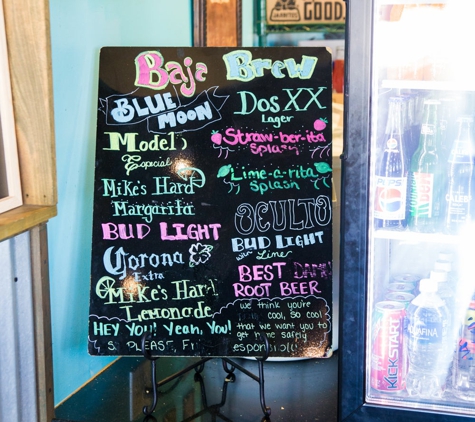 GOOD
Baja Brew
BLUE MOON
Modelo
Especial
Mike's Hard
Margarita
BUD LIGHT
Corona
Extra
Mike's Hard
Lemonade
Dos XX
Lager
Straw-ber-ita
Splash
Lime-a-rita
Splash
OCULTO
BUD LIGHT
with Lime
BEST DAMN
ROOT BEER
HEY YOU! Yeah, YOU!
we think you're
cool, so cool
that we want you to
get home safely
PLEASE,
pepsi
KICKSTART